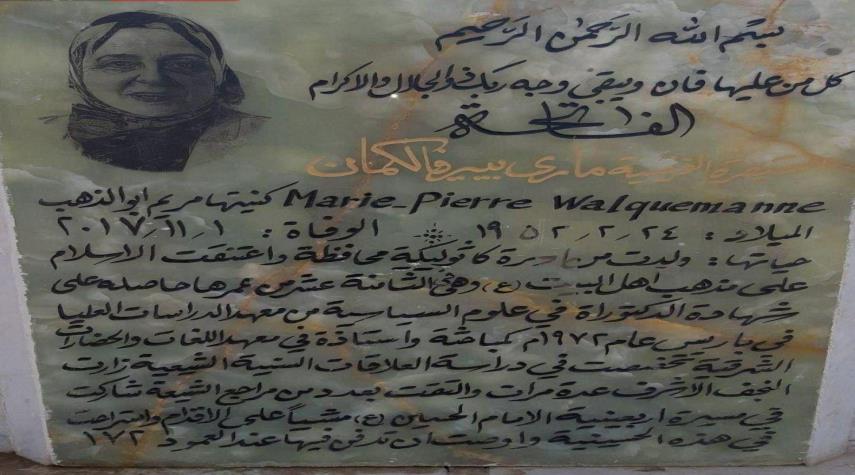 بسم الله الرحمن الرحيم
كل من عليها فان ويبقى وجه ربك ذو الجلال والاكرام
الفاتحة
ماري بيير والكمان
Marie-Pierre Walquemanne كنيتها مريم ابو الذهب
الميلاد : ٢٤ ٫ ٢ ٫ ١٩٥٢ الوفاة : ١ ٫ ١١ ٫ ٢٠١٧
حياتها : ولدت من كاثوليكية محافظة واعتنقت الاسلام
على مذهب اهل البيت (ع) وهي الثامنة عشر من عمرها حاصله على
شهادة الدكتوراة في علوم السياسية من معهد الدراسات العليا
في باريس عام ١٩٧٢م كباحثة واستاذة في معهد اللغات والحضارات
الشرقية تخصصت في دراسة العلاقات السنية الشيعية زارت
النجف الاشرف عدة مرات والتقت بعدد من مراجع الشيعة شاركت
في مسيرة اربعينية الامام الحسين (ع) مشياً على الاقدام واستراحت
في هذه الحسينية واوصت ان تدفن فيها عند العمود ١٧٢